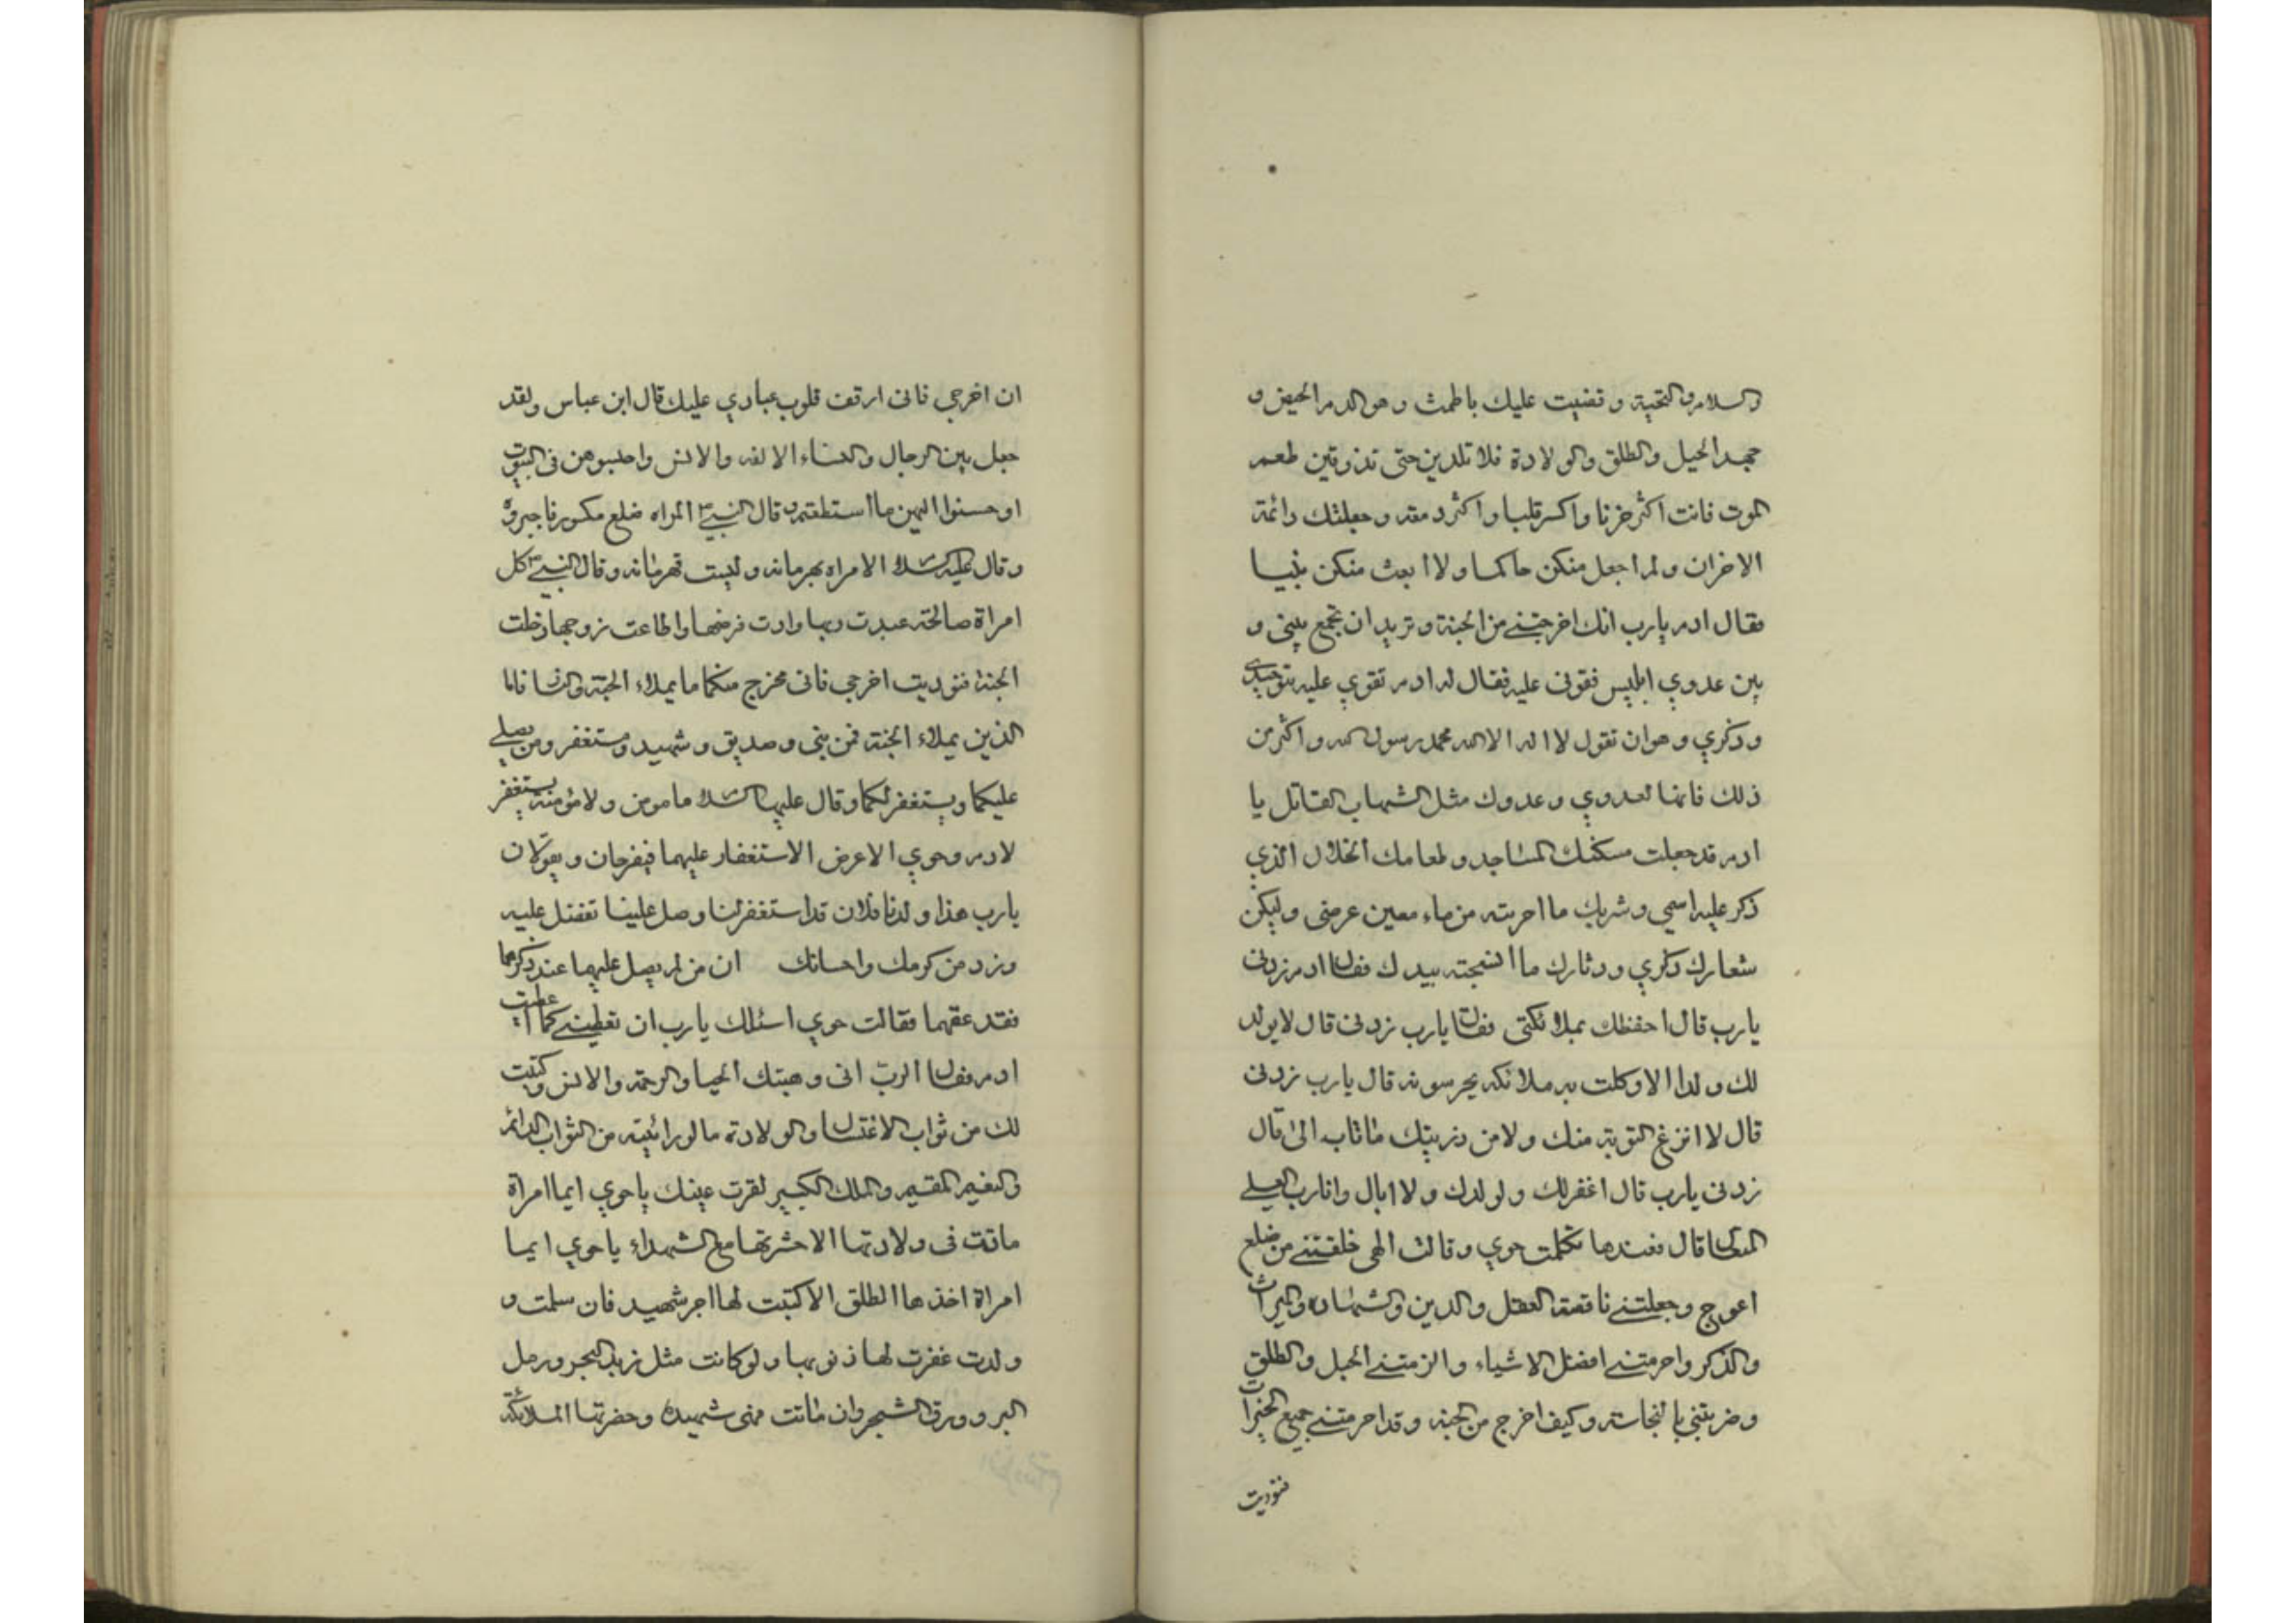 والسلام والتحية وقضيت عليك بالطمث وهو الدم الحيض و
جهد الحبل والطلق والولادة فلا تلدين حتى تذوقين طعم
الموت فانت اكثر حزنا واكسر قلبا واكثر دمعه وجعلتك دائمة
الاحزان ولم اجعل منكن حاكما ولا ابعث منكن نبيا
فقال ادم يارب انك اخرجتني من الجنة وتريد ان تجمع بيني و
بين عدوي ابليس فقوني عليه فقال له ادم تقوي عليه بتوحيدي
وذكري وهو ان تقول لا اله الا الله محمد رسول الله واكثر من
ذلك فانها لعدوي وعدوك مثل الشهاب القاتل يا
ادم قد جعلت مسكنك المساجد وطعامك الحلال الذي
ذكر عليه اسمي وشربك ما اجريته من ماء معين عرضى وليكن
شعارك ذكري ودثارك ما انسجته بيدك فقال ادم زدنى
يارب قال احفظك بملائكتى فقال يارب زدنى قال لا يولد
لك ولدا الا وكلت به ملائكه يحرسونه قال يارب زدنى
قال لا انزع التوبة منك ولا من ذريتك ماتاب الى قال
زدنى يارب قال اغفر لك ولولدك ولا ابال وانا رب العلي
المتعال قال فعندها تكلمت حوي وقالت الهى خلقتني من ضلع
اعوج وجعلتني ناقصة العقل والدين والشهاده والميراث
والذكر واحرمتني افضل الاشياء والزمتني الحبل والطلق
وضربتني بالنجاسته وكيف اخرج من الجنه وقد احرمتني جميع الخيرات
فنوديت
ان اخرجي فانى ارقق قلوب عبادي عليك قال ابن عباس ولقد
جعل بين الرجال والنساء الالفه والانس واحبسوهن فى البيوت
او حسنوا اليهن ما استطعتم وقال النبي المراه ضلع مكسور فاجبروه
وقال عليه السلام الامراه بهرمانه وليست قهرمانه وقال النبي كل
امراة صالحته عبدت ربها وادت فرضها واطاعت زوجها دخلت
الجنة فنوديت اخرجي فانى مخرج منكما ما يملاء الجنة والنار فاما
الذين يملاء الجنة فمن نبى وصديق وشهيد ومستغفر ومن يصلي
عليكما ويستغفر لكما وقال عليها السلام مامومن ولا مؤمنة يستغفر
لادم وحوي الا عرض الاستغفار عليهما فيفرحان ويقولان
يارب هذا ولدنا فلان قد استغفر لنا وصل علينا تفضل عليه
وزد من كرمك واحسانك ان من لم يصل عليهما عند ذكرهما
فقد عقهما فقالت حوي اسئلك يارب ان تعطيني كما اعطيت
ادم فقال الرب انى وهبتك الحيا والرحمة والانس وكتبت
لك من ثواب الاغتسال والولادة ما لو رائيته من الثواب الدائم
والنعيم المقيم والملك الكبير لقرت عينك يا حوي ايما امراة
ماتت فى ولادتها الا حشرتها مع الشهداء يا حوي ايما
امراة اخذها الطلق الا كتبت لها اجر شهيد فان سلمت و
ولدت غفرت لها ذنوبها ولو كانت مثل زبد البحر ورمل
البر وورق الشجر وان ماتت فهى شهيده وحضرتها الملائكة